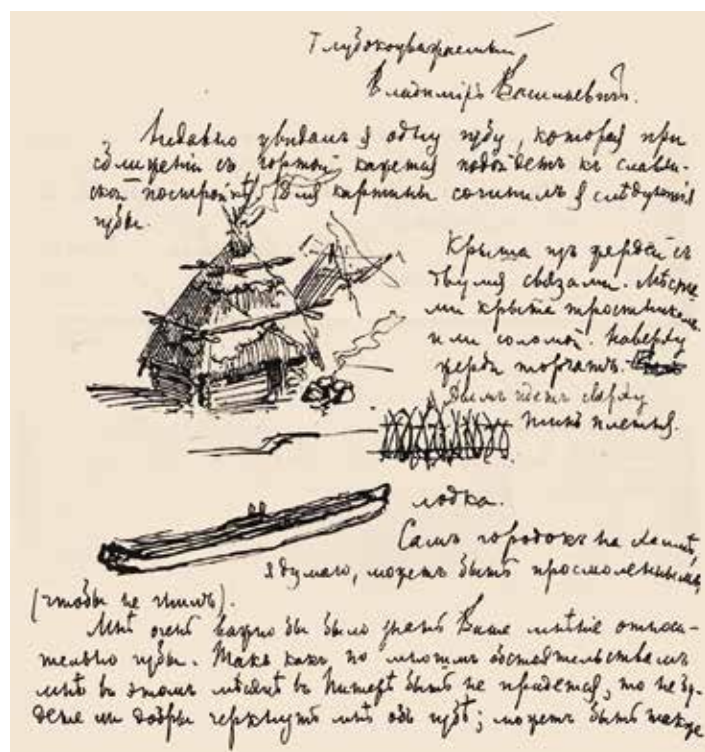 Глубокоуважаемый
Владиміръ Васильевичъ.
Недавно увидалъ я одну избу, которая при
сближеніи съ юртой кажется подойдетъ къ славян-
ской постройкѣ. Для картины сочинилъ я слѣдующія
избы.
Крыша изъ жердей съ
двумя связами. Мѣста-
ми крыта тростникомъ
или соломой. Наверху
жерди торчатъ.
Дымъ идетъ сверху
Типъ плетня.
лодка.
Самъ городокъ на
я думаю, можетъ быть просмоленнымъ
(чтобы не гнилъ).
Мнѣ очень важно бы было знать Ваше мнѣніе относи-
тельно избы. Такъ какъ, по многимъ обстоятельствамъ
мнѣ въ этомъ мѣсяцѣ въ Питерѣ быть не придется, то не бу-
дете ли добры черкнуть мнѣ объ избѣ; можетъ быть также